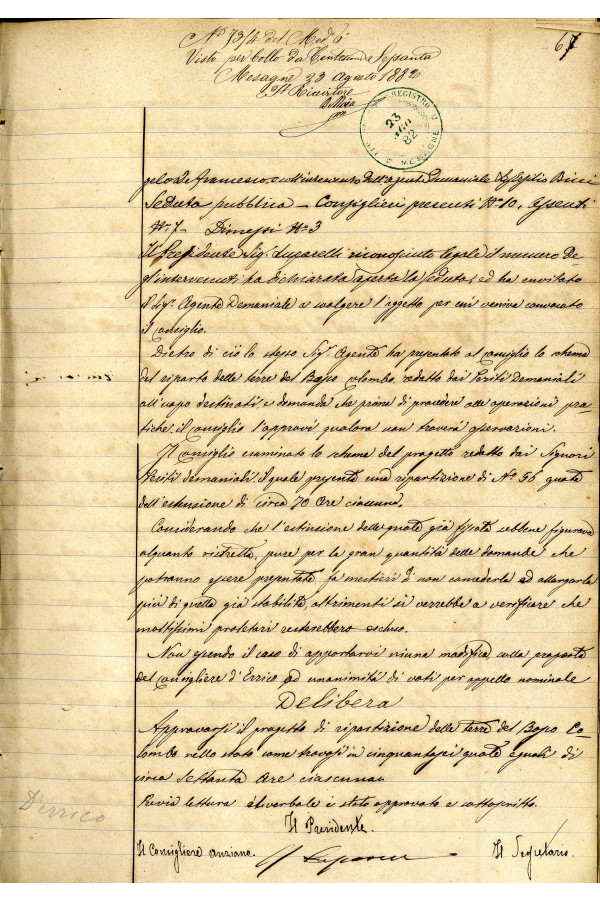 67
N° 73/4 del Mod° 6
Visto per bollo da Centesimi Sessanta
Mesagne 23 Agosto 1882
Il Ricevitore
REGISTRO
23
AGO
82
MESAGNE
gelo De Francesco, e coll'intervento dell'agente Demaniale Sig.
Seduta pubblica – Consiglieri presenti N° 10, Assenti
N° 7 – Dimessi N° 3
Il Presidente Sig. Lusarelli riconosciuto legale il numero de-
gl'intervenuti ha dichiarata aperta la seduta, ed ha invitato
il Sig. Agente Demaniale a svolgere l'oggetto per cui veniva convocato
il Consiglio.
Dietro di ciò lo stesso Sig. Agente ha presentato al Consiglio lo schema
del riparto delle terre del Bosco Colombo redatto dai Periti Demaniali
all'uopo destinati, e domanda che prima di procedere alle operazioni pra-
tiche il Consiglio l'approvi qualora non troverà osservazioni.
Il Consiglio esaminato lo schema del progetto redatto dai Signori
Periti demaniali il quale presenta una ripartizione di N° 56 quote
dell'estensione di circa 70 Are ciascuna.
Considerando che l'estensione delle quote già fissate sebbene figurava
alquanto ristretta, pure per la gran quantità delle domande che
potranno essere presentate fa mestieri di non concederla ad allargarla
più di quella già stabilita, altrimenti si verrebbe a verificare che
moltissimi proletari resterebbero esclusi.
Non essendo il caso di apportarvi niuna modifica sulla proposta
del Consigliere d'Errico ad unanimità di voti per appello nominale
Delibera
Approvarsi il progetto di ripartizione delle terre del Bosco Co-
lombo nello stato come trovasi in cinquantasei quote eguali di
circa settanta Are ciascuna
Previa lettura il verbale è stato approvato e sottoscritto.
D'errico
Il Presidente.
Il Consigliere anziano.
Il Segretario.